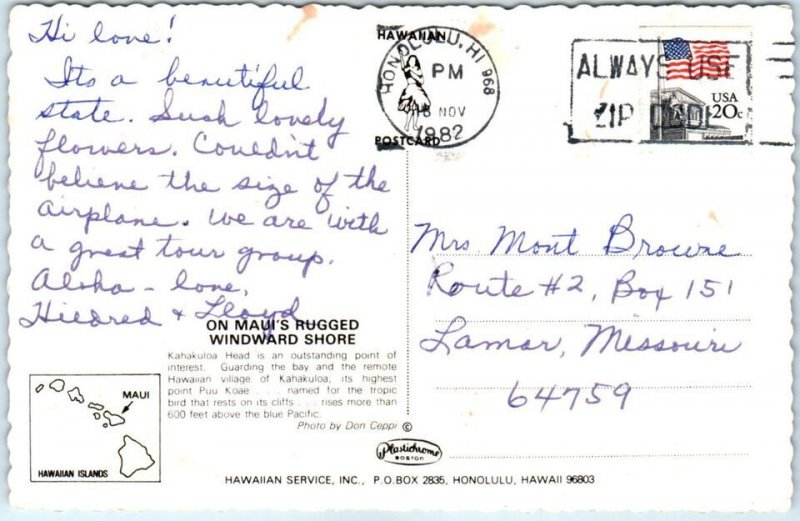 Hi love!
Its a beautiful
state. Such lovely
flowers. Couldn't
believe the size of the
airplane. We are with
a great tour group.
Aloha - love,
Hildred & Lloyd
HAWAIIAN
POSTCARD
HONOLULU, HI 968
PM
18 NOV
1982
ALWAYS USE
ZIP CODE
USA
20c
Mrs. Mont Browne
Route #2, Box 151
Lamar, Missouri
64759
ON MAUI'S RUGGED
WINDWARD SHORE
Kahakuloa Head is an outstanding point of
interest. Guarding the bay and the remote
Hawaiian village of Kahakuloa, its highest
point Puu Koae . . . named for the tropic
bird that rests on its cliffs . . . rises more than
600 feet above the blue Pacific.
Photo by Don Ceppi ©
MAUI
HAWAIIAN ISLANDS
Plastichrome
BOSTON
HAWAIIAN SERVICE, INC., P.O.BOX 2835, HONOLULU, HAWAII 96803